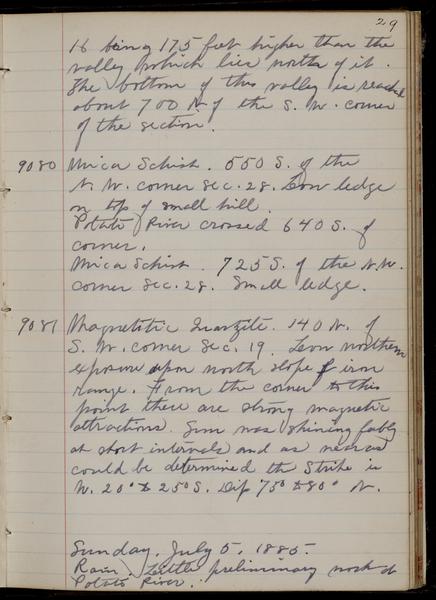 29
It being 175 feet higher than the
valley which lies north of it.
The bottom of this valley is reached
about 700 N. of the S. W. corner
of the section.
9080 Mica Schist. 550 S. of the
N. W. corner Sec. 28. Low ledge
on top of small hill.
Potato River crossed 640 S. of
corner.
Mica Schist. 725 S. of the N.W.
corner Sec. 28. Small ledge.
9081 Magnetitic Quarzite. 140 N. of
S. W. corner Sec. 19. Low northern
exposure upon north slope of iron
range. From the corner to this
point there are strong magnetic
attractions. Sun was shining
at short intervals and as near as
could be determined the Strike is
W. 20° to 25° S. Dip 75° to 80° N.
Sunday, July 5, 1885.
Rain. Little preliminary work at
Potato River.